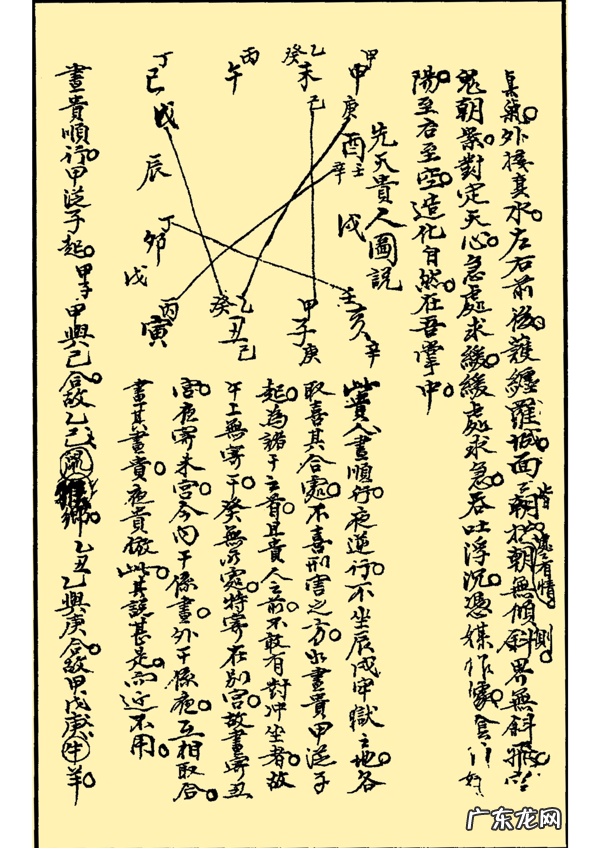 真氣外接真水左右前後護纏羅城面面朝拱朝無傾斜界無斜飛
皆要有情
則
鬼朝案對定天心急處求緩緩處求急吞吐浮沉憑媒作
陽至右至空造化自然在吾掌中
先天貴人圖說
甲
申
庚
乙
癸
未
己
丙
午
丁
巳
戊
辰
丁
卯
戊
丙
寅
乙
癸
丑
己
甲
子
庚
壬
亥
辛
戌
壬
酉
辛
此貴人晝順行夜逆行不坐辰戌牢獄之地各
取喜其合處不喜刑害之方如晝貴甲從子
起為諸干之首且貴人之前不敢有對冲坐者故
午上無寄干癸無所處特寄在別宮故晝寄丑
宮夜寄未宮今內干係晝外干係夜互相取合
晝其晝貴夜貴檢此其說甚是而近不用
晝貴順行甲從子起甲子甲與己合故乙己鼠鄉乙丑乙與庚合故甲戊庚牛羊
广东龙网